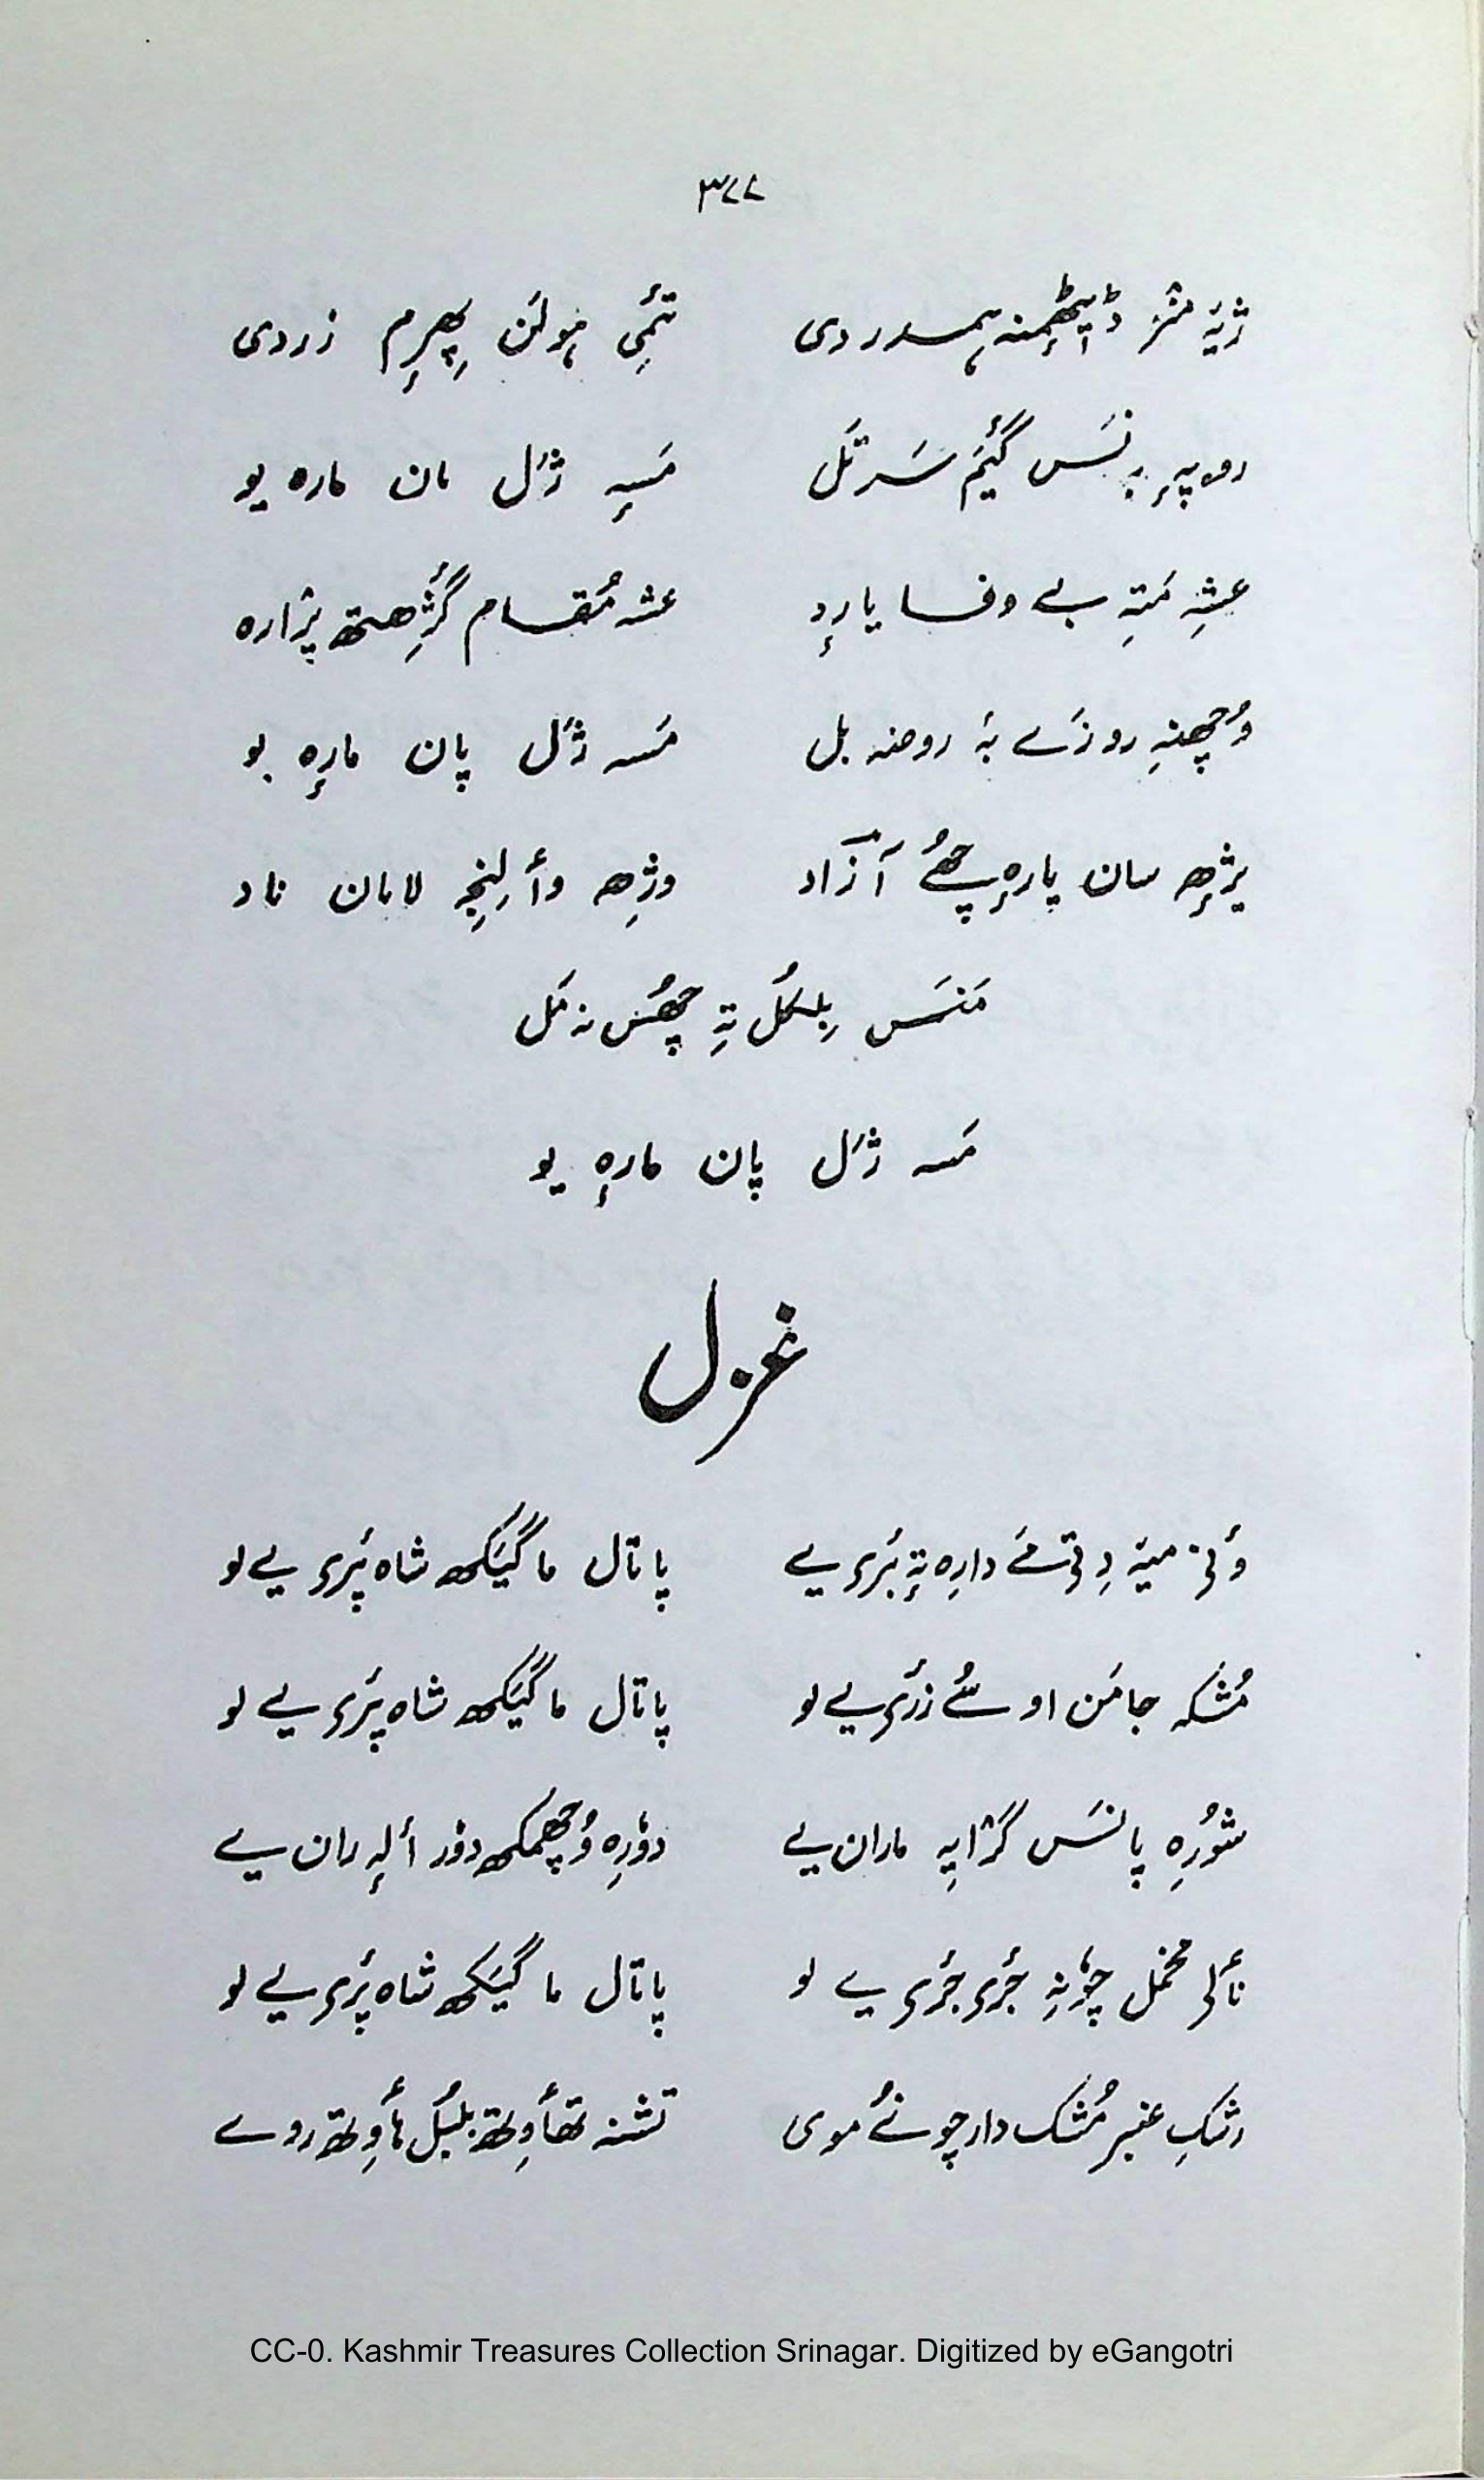 ۳۷۷
ژیہٕ منٛز ڈیٖٹھِمنہٕ ہمدردی تَمی ہولَن پھِرِم زردی
روپہٕ بدنَس گَیَم سَرتَل مَسہٕ ژٔل مان مارہ یو
عشِہ مَتہِ بے وفا یارِد عشہ مُقام گژِھتھ پرٛارہ
وُچھنہِ روزَے بۂ روضہ بل مَسہ ژٔل پان مارٕہ یو
یژٕھ سان پارٕہ چھُے آزاد وژِھ وألِنجہِ لامان ناد
مَنَس بِلکُل تہِ چھُس نہ مَل
مَسہ ژٔل پان مارٕہ یو
غزل
وَنۍ میہٕ دِتی مَے دارِہ تہٕ بَری یے پاتال ما گَیَکھ شاہ پَری یے لو
مُشکہ جامَن اوسُے زَری یے لو پاتال ما گَیَکھ شاہ پَری یے لو
شوٗرِہ پانَس گژایہِ ماران یے دوٗرِہ وُچھمکھ دوٗر ألہٕ ران یے
نألۍ مخمل چوٗنہِ جَری جَری یے لو پاتال ما گَیَکھ شاہ پَری یے لو
رشکِ عنبر مُشک دار چونُے موی تشنہ تھأوِتھ بلبُل ہأوِتھ روے
CC-0. Kashmir Treasures Collection Srinagar. Digitized by eGangotri